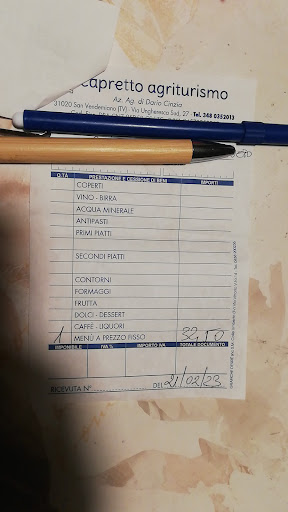 capretto agriturismo
Az. Ag. di Dario Cinzia
31020 San Vendemiano (TV) - Via Ungheresca Sud, 27 - Tel. 348 0352013
Q.TÀ PRESTAZIONE E CESSIONE DI BENI IMPORTI
COPERTI
VINO - BIRRA
ACQUA MINERALE
ANTIPASTI
PRIMI PIATTI
SECONDI PIATTI
CONTORNI
FORMAGGI
FRUTTA
DOLCI - DESSERT
CAFFÈ - LIQUORI
1 MENÙ A PREZZO FISSO 32.50
IMPONIBILE IVA % IMPORTO IVA TOTALE DOCUMENTO
RICEVUTA N° DEL 21/02/23